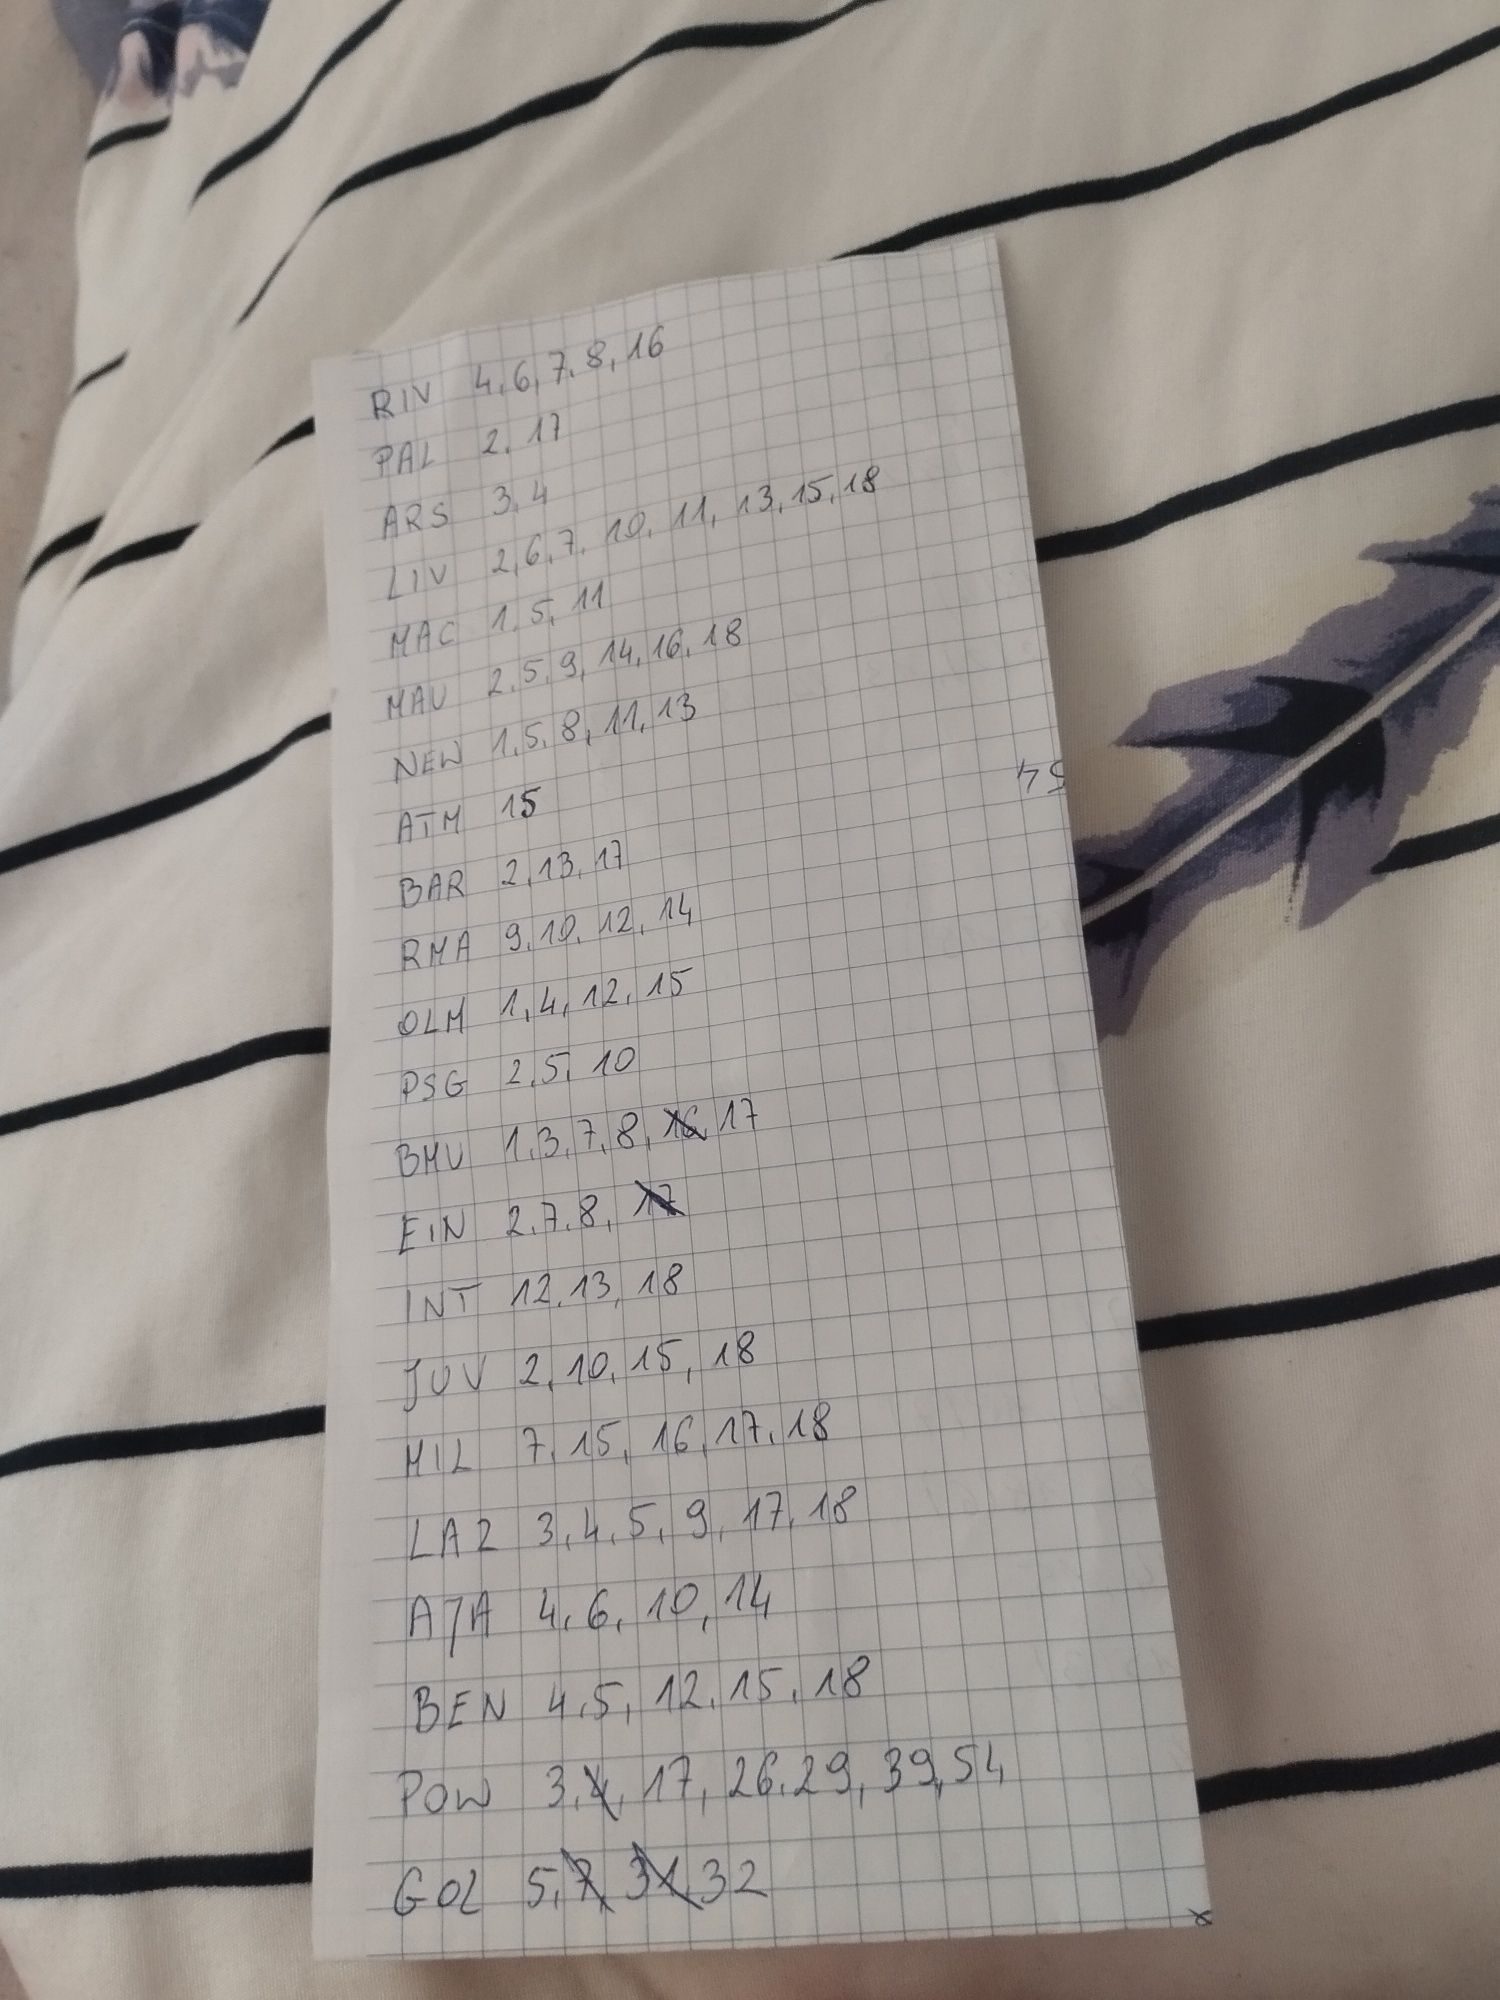 RIV 4,6,7,8,16
PAL 2,17
ARS 3,4
LIV 2,6,7,10,11,13,15,18
MAC 1,5,11
MAU 2,5,9,14,16,18
NEW 1,5,8,11,13
ATM 15
BAR 2,13,17
RMA 9,10,12,14
OLM 1,4,12,15
PSG 2,5,10
BMU 1,3,7,8,16,17
EIN 2,7,8,17
INT 12,13,18
JUV 2,10,15,18
MIL 7,15,16,17,18
LAZ 3,4,5,9,17,18
AJA 4,6,10,14
BEN 4,5,12,15,18
POW 3,4,17,26,29,39,54
GOL 5,7,31,32
54